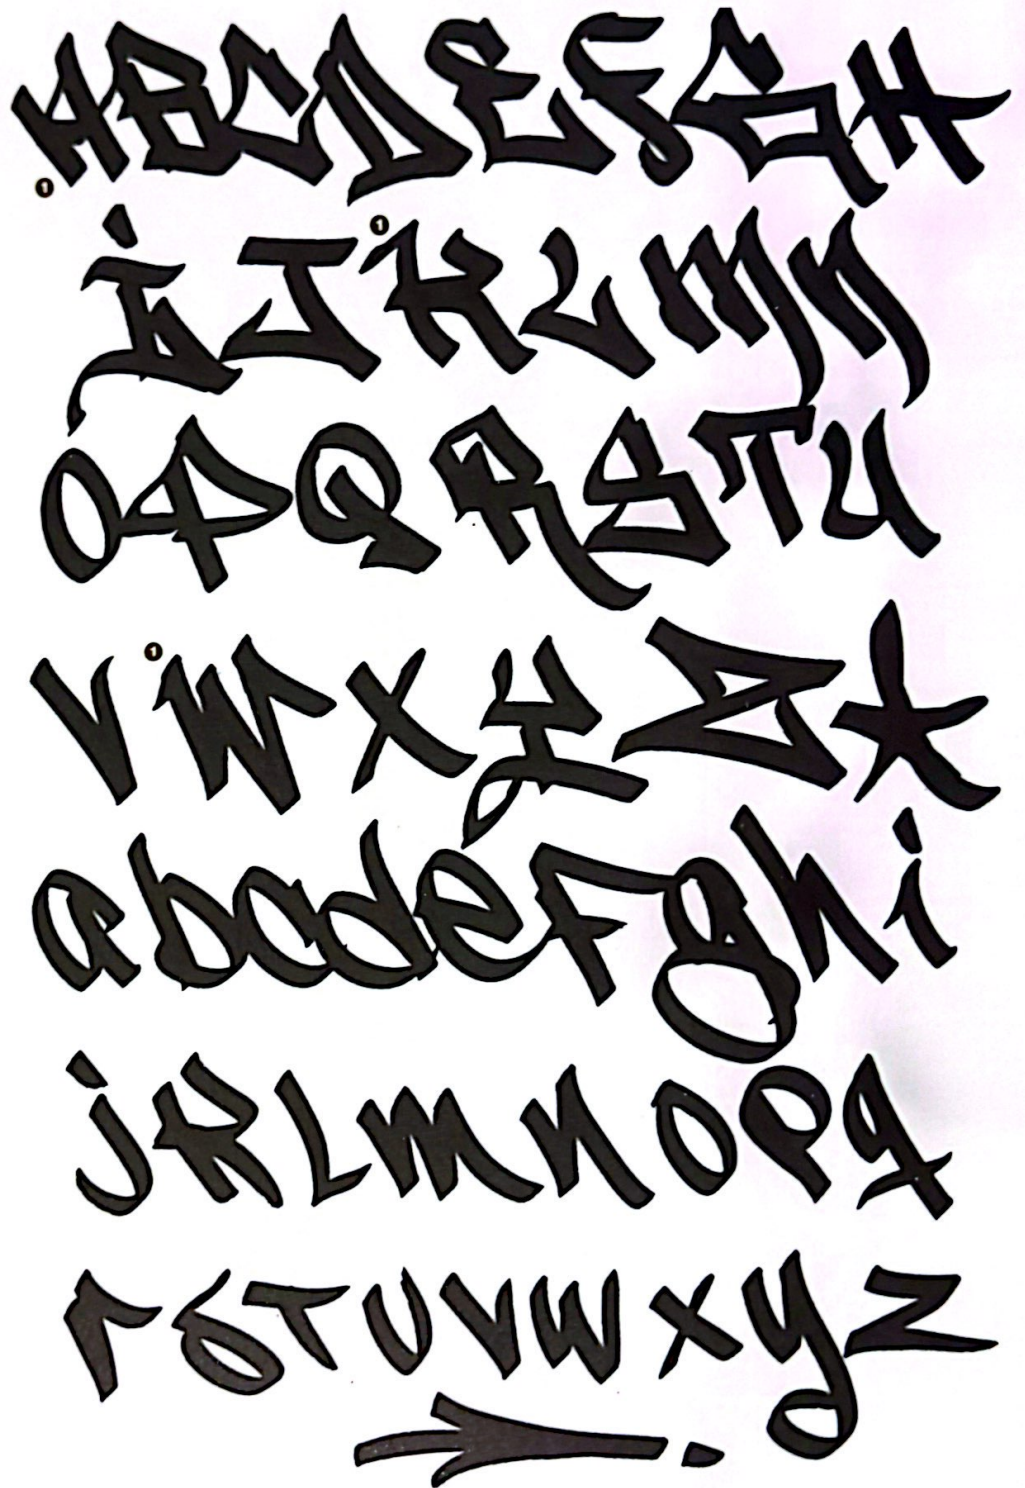 ABCDEFGH
1
iJKLmn
1
OPQRSTU
VWXYZ*
1
abcdefghi
jklmnopq
rstuvwxyz